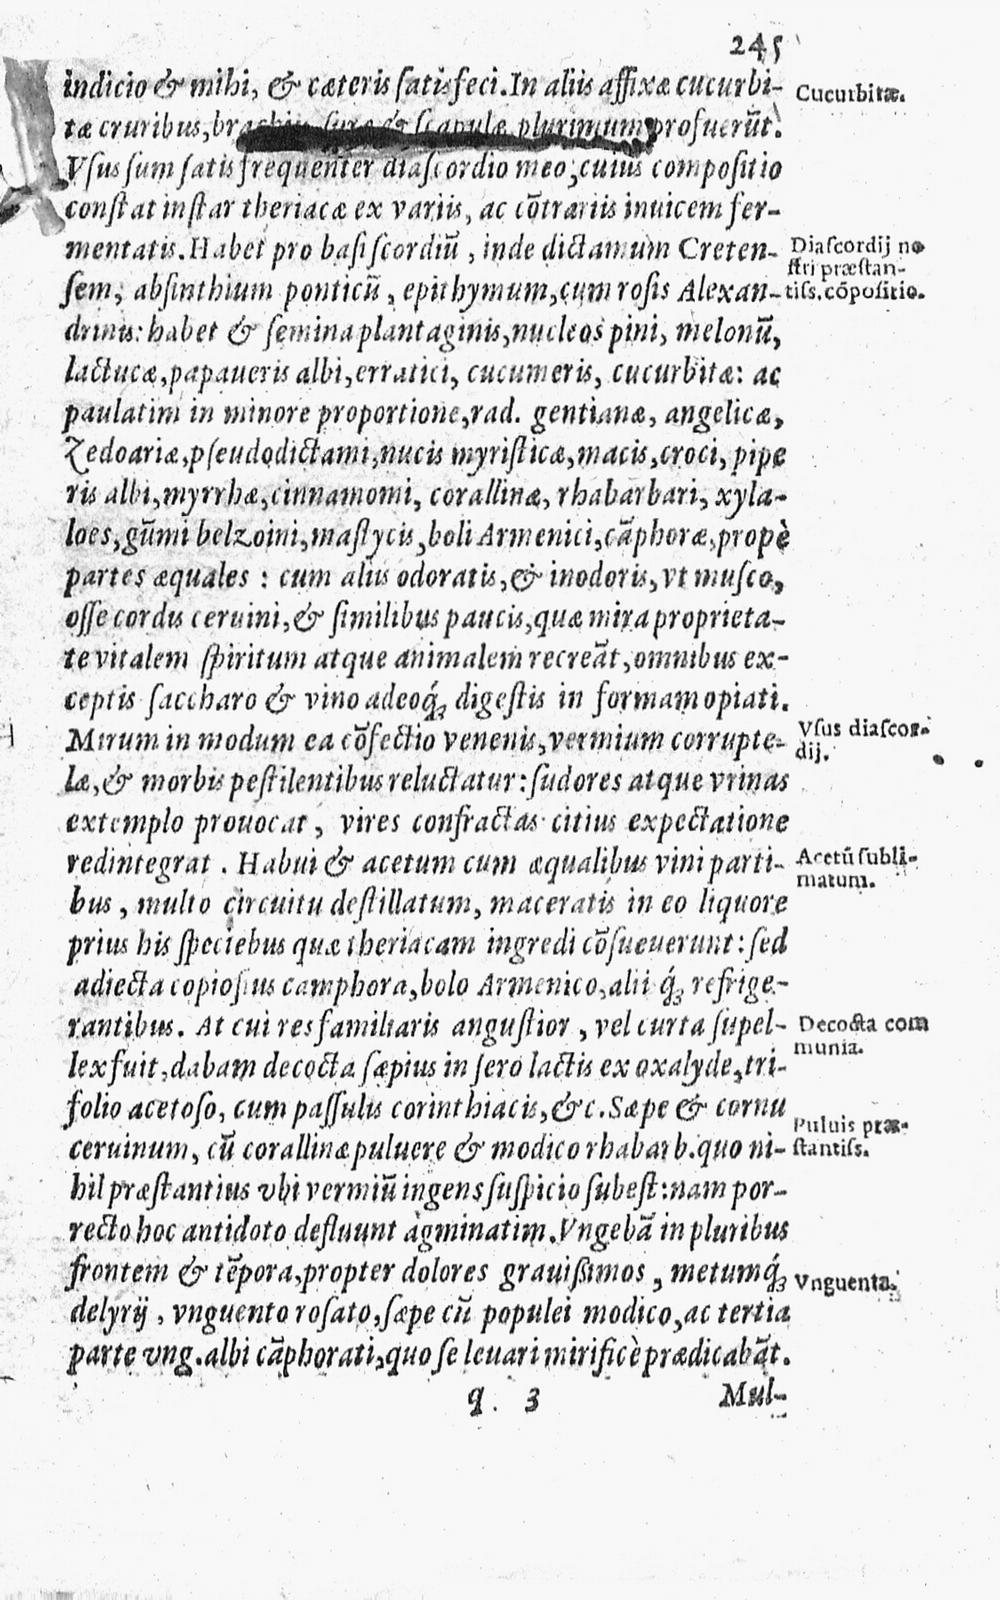 245
indicio & mihi, & cæteris ſatisfeci. In aliis affixæ cucurbi-
Cucurbitæ.
tæ cruribus, brachiis, ſuræ & ſcapulæ plurimum profuerūt.
Vſus ſum ſatis frequenter diaſcordio meo, cuius compoſitio
conſtat inſtar theriacæ ex variis, ac cōtrariis inuicem fer-
mentatis. Habet pro baſi ſcordiū, inde dictamum Creten-
Diaſcordij no
ſtri præſtan-
tiſs. cōpoſitio.
ſem, abſinthium ponticū, epithymum, cum roſis Alexan-
drinis: habet & ſemina plantaginis, nucleos pini, melonū,
lactucæ, papaueris albi, erratici, cucumeris, cucurbitæ: ac
paulatim in minore proportione, rad. gentianæ, angelicæ,
Zedoariæ, pſeudodictami, nucis myriſticæ, macis, croci, pipe
ris albi, myrrhæ, cinnamomi, corallinæ, rhabarbari, xyla-
loes, gūmi belzoini, maſtycis, boli Armenici, cāphoræ, propè
partes æquales : cum aliis odoratis, & inodoris, vt muſco,
oſſe cordis ceruini, & ſimilibus paucis, quæ mira proprieta-
te vitalem ſpiritum atque animalem recreāt, omnibus ex-
ceptis ſaccharo & vino adeoq́; digeſtis in formam opiati.
Mirum in modum ea cōfectio venenis, vermium corrupte-
Vſus diaſcor-
dij.
læ, & morbis peſtilentibus reluctatur: ſudores atque vrinas
extemplo prouocat, vires confractas citius expectatione
redintegrat. Habui & acetum cum æqualibus vini parti-
Acetū ſubli-
matum.
bus, multo circuitu deſtillatum, maceratis in eo liquore
prius his ſpeciebus quæ theriacam ingredi cōſueuerunt: ſed
adiecta copioſius camphora, bolo Armenico, alii q́; refrige-
rantibus. At cui res familiaris anguſtior, vel curta ſupel-
Decocta com
munia.
lex fuit, dabam decocta ſæpius in ſero lactis ex oxalyde, tri-
folio acetoſo, cum paſſulis corinthiacis, &c. Sæpe & cornu
Puluis præ-
ſtantiſs.
ceruinum, cū corallinæ puluere & modico rhabarb. quo ni-
hil præſtantius vbi vermiū ingens ſuſpicio ſubeſt: nam por-
recto hoc antidoto defluunt agminatim. Vngebā in pluribus
frontem & tēpora, propter dolores grauiſſimos, metumq́;
Vnguenta.
delyrij, vnguento roſato, ſæpe cū populei modico, ac tertia
parte vng. albi cāphorati, quo ſe leuari mirificè prædicabāt.
q. 3
Mul-